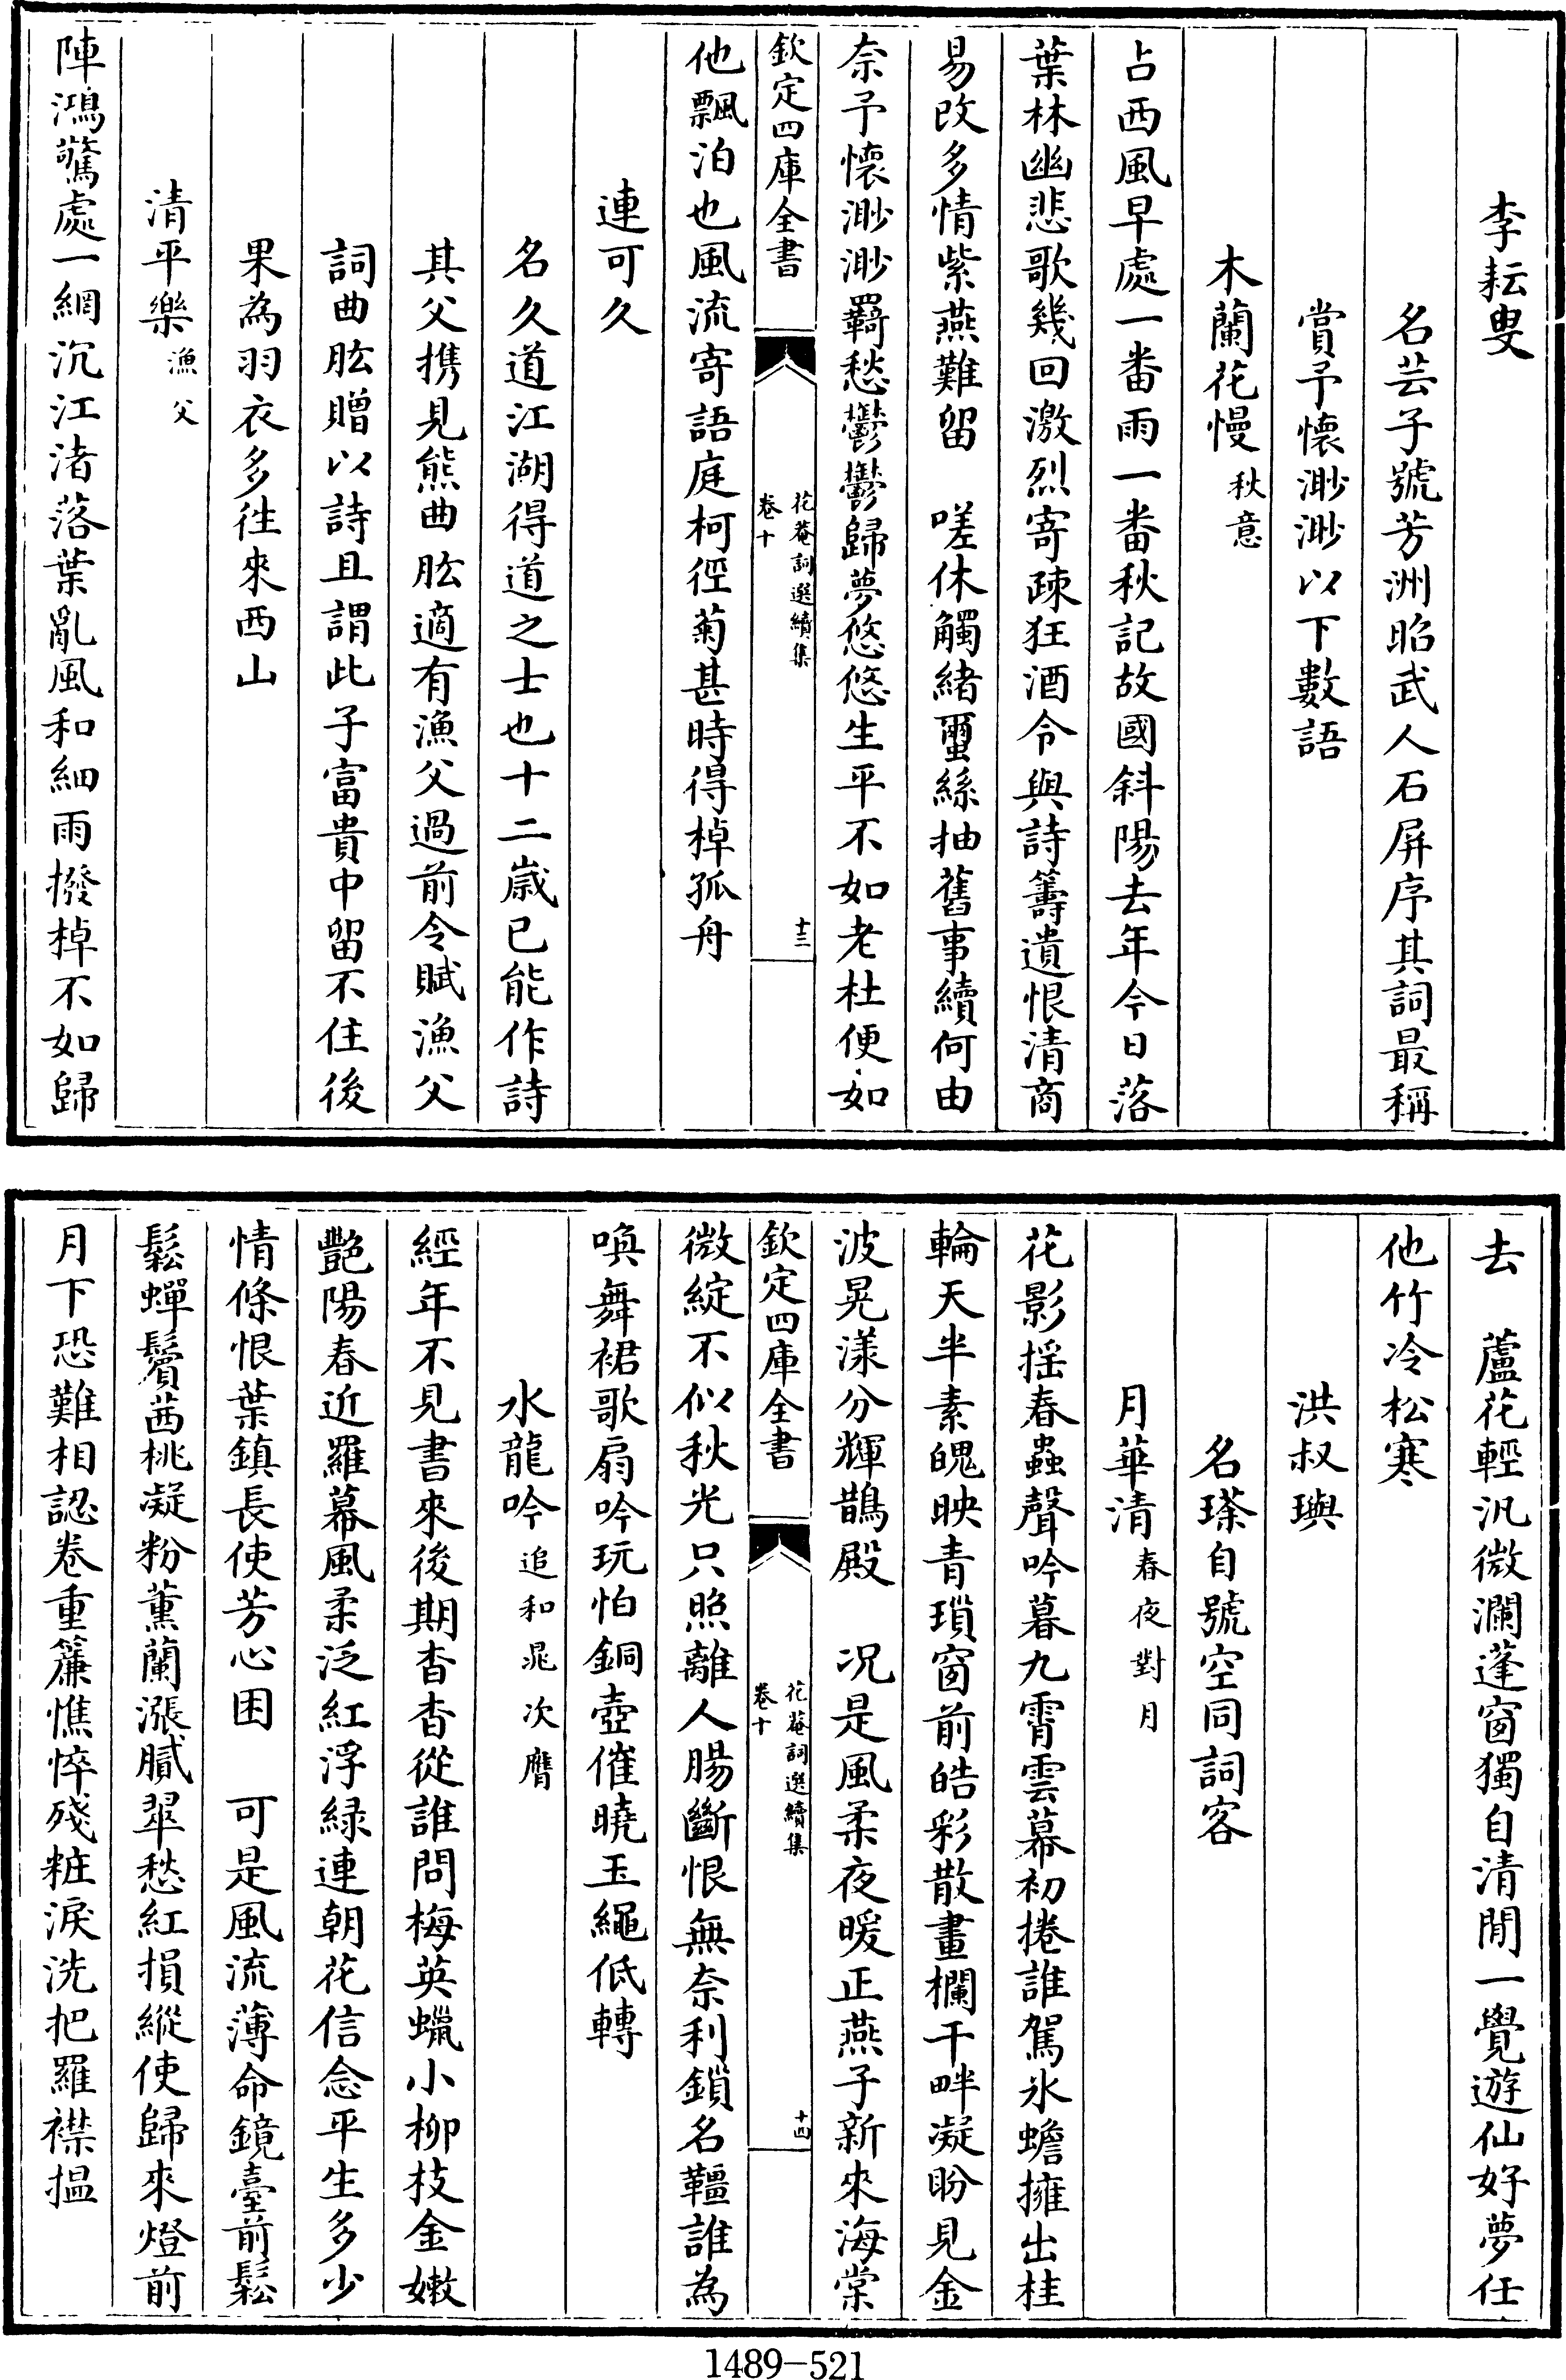 李耘叟
名芸子號芳洲昭武人石屏序其詞最稱
賞予懷渺渺以下數語
木蘭花慢秋意
占西風早處一番雨一番秋記故國斜陽去年今日落
葉林幽悲歌幾回激烈寄疎狂酒令與詩籌遺恨清商
易改多情紫燕難留　嗟休觸緒蠒絲抽舊事續何由
奈予懷渺渺羇愁鬱鬱歸夢悠悠生平不如老杜便如
欽定四庫全書
花菴詞選續集
卷十
十三
他飄泊也風流寄語庭柯徑菊甚時得棹孤舟
連可久
名久道江湖得道之士也十二歲已能作詩
其父携見熊曲肱適有漁父過前令賦漁父
詞曲肱贈以詩且謂此子富貴中留不住後
果為羽衣多徃來西山
清平樂漁父
陣鴻驚處一網沉江渚落葉亂風和細雨撥棹不如歸
去　蘆花輕汎微瀾蓬窗獨自清閒一覺遊仙好夢任
他竹冷松寒
洪叔璵
名瑹自號空同詞客
月華清春夜對月
花影揺春蟲聲吟暮九霄雲幕初捲誰駕氷蟾擁出桂
輪天半素魄映青瑣窗前皓彩散畫欄干畔凝盼見金
波晃漾分輝鵲殿　况是風柔夜暖正燕子新來海棠
欽定四庫全書
花菴詞選續集
卷十
十四
微綻不似秋光只照離人腸斷恨無奈利鎖名韁誰為
喚舞裙歌扇吟玩怕銅壺催曉玉繩低轉
水龍吟追和晁次膺
經年不見書來後期杳杳從誰問梅英蠟小柳枝金嫩
艷陽春近羅幕風柔泛紅浮緑連朝花信念平生多少
情條恨葉鎮長使芳心困　可是風流薄命鏡臺前鬆
鬆蟬鬢茜桃凝粉薰蘭漲膩翠愁紅損縱使歸來燈前
月下恐難相認卷重簾憔悴殘粧淚洗把羅襟揾
1489-521